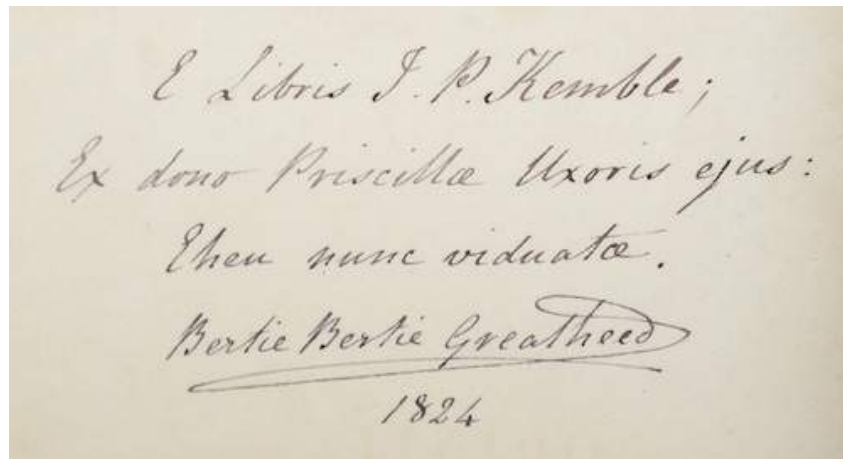 E Libris J. P. Kemble;
Ex dono Priscillæ Uxoris ejus:
Eheu nunc viduatæ.
Bertie Bertie Greatheed
1824